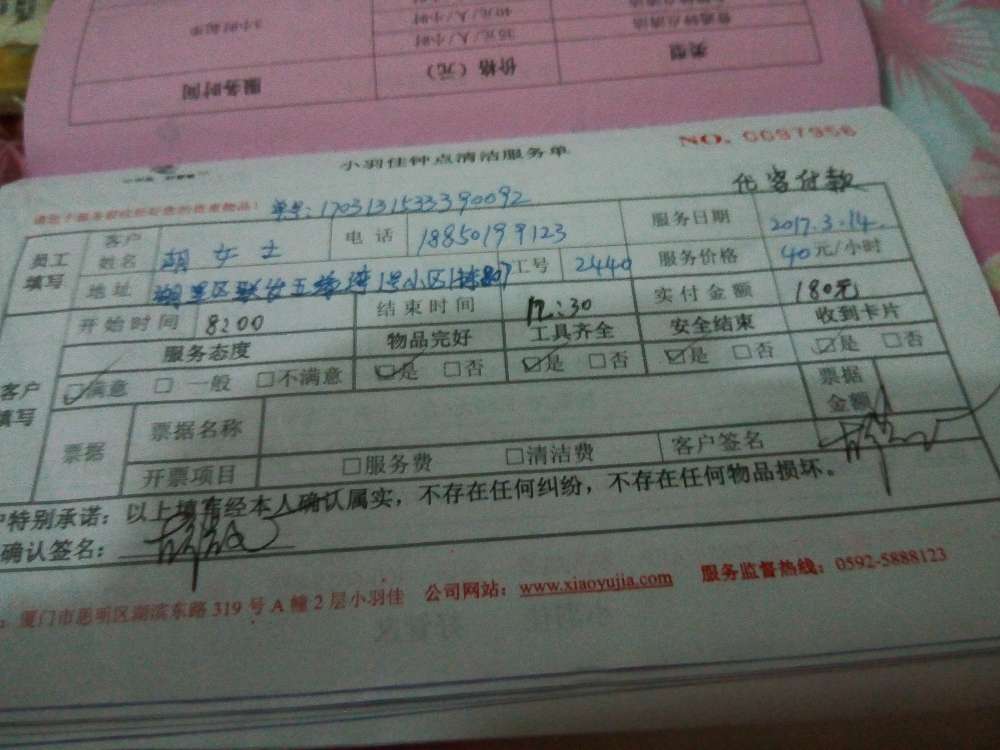 服务时间 价格（元） 类型
35元/人/小时 普通钟点清洁
3小时起季 40元/人/小时
NO. 0097956
小羽佳钟点清洁服务单
代客付款
单号：1703131533390092
员工填写 客户姓名 胡女士 电话 18850199123 服务日期 2017.3.14.
地址 湖里区联发五缘湾1号小区1栋807 工号 2440 服务价格 40元/小时
开始时间 8:00 结束时间 12:30 实付金额 180元
客户填写 服务态度 物品完好 工具齐全 安全结束 收到卡片
☑满意 □一般 □不满意 ☑是 □否 ☑是 □否 ☑是 □否 ☑是 □否
票据 票据名称 票据金额
开票项目 □服务费 □清洁费 客户签名
户特别承诺：以上填写经本人确认属实，不存在任何纠纷，不存在任何物品损坏。
确认签名：
厦门市思明区湖滨东路319号A幢2层小羽佳 公司网站：www.xiaoyujia.com 服务监督热线：0592-5888123